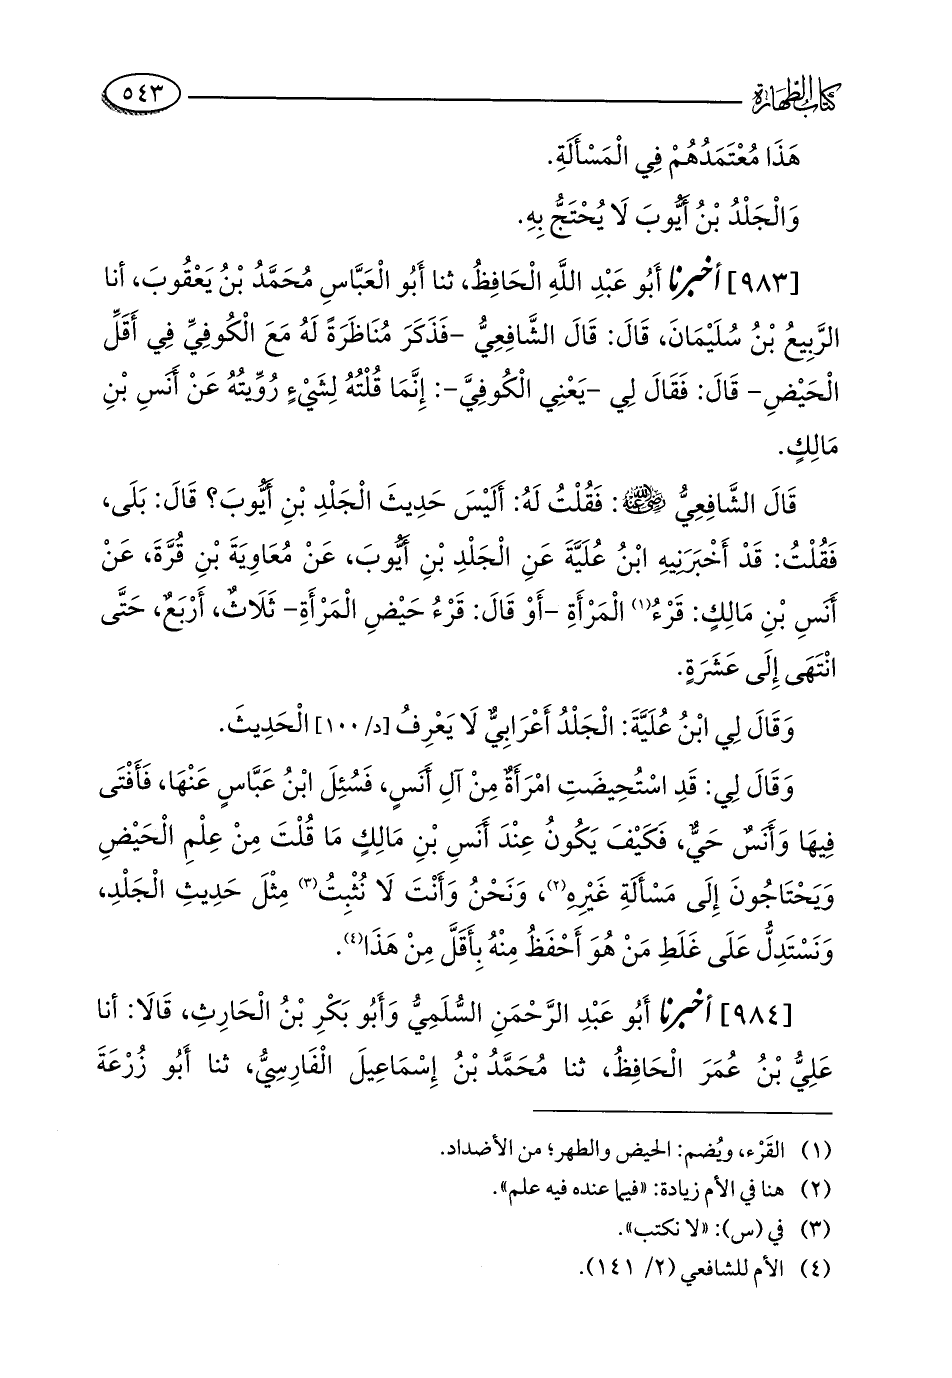 كتاب الطهارة
٥٤٣
هَذَا مُعْتَمَدُهُمْ فِي الْمَسْأَلَةِ.
وَالْجَلْدُ بْنُ أَيُّوبَ لَا يُحْتَجُّ بِهِ.
[٩٨٣] أخبرنا أَبُو عَبْدِ اللَّهِ الْحَافِظُ، ثنا أَبُو الْعَبَّاسِ مُحَمَّدُ بْنُ يَعْقُوبَ، أنا
الرَّبِيعُ بْنُ سُلَيْمَانَ، قَالَ: قَالَ الشَّافِعِيُّ -فَذَكَرَ مُنَاظَرَةً لَهُ مَعَ الْكُوفِيِّ فِي أَقَلِّ
الْحَيْضِ- قَالَ: فَقَالَ لِي -يَعْنِي الْكُوفِيَّ-: إِنَّمَا قُلْتُهُ لِشَيْءٍ رُوِّيتُهُ عَنْ أَنَسِ بْنِ
مَالِكٍ.
قَالَ الشَّافِعِيُّ رضي الله عنه: فَقُلْتُ لَهُ: أَلَيْسَ حَدِيثَ الْجَلْدِ بْنِ أَيُّوبَ؟ قَالَ: بَلَى،
فَقُلْتُ: قَدْ أَخْبَرَنِيهِ ابْنُ عُلَيَّةَ عَنِ الْجَلْدِ بْنِ أَيُّوبَ، عَنْ مُعَاوِيَةَ بْنِ قُرَّةَ، عَنْ
أَنَسِ بْنِ مَالِكٍ: قَرْءُ(١) الْمَرْأَةِ -أَوْ قَالَ: قَرْءُ حَيْضِ الْمَرْأَةِ- ثَلَاثٌ، أَرْبَعٌ، حَتَّى
انْتَهَى إِلَى عَشَرَةٍ.
وَقَالَ لِي ابْنُ عُلَيَّةَ: الْجَلْدُ أَعْرَابِيٌّ لَا يَعْرِفُ [د/ ١٠٠] الْحَدِيثَ.
وَقَالَ لِي: قَدِ اسْتُحِيضَتِ امْرَأَةٌ مِنْ آلِ أَنَسٍ، فَسُئِلَ ابْنُ عَبَّاسٍ عَنْهَا، فَأَفْتَى
فِيهَا وَأَنَسٌ حَيٌّ، فَكَيْفَ يَكُونُ عِنْدَ أَنَسِ بْنِ مَالِكٍ مَا قُلْتَ مِنْ عِلْمِ الْحَيْضِ
وَيَحْتَاجُونَ إِلَى مَسْأَلَةِ غَيْرِهِ(٢)، وَنَحْنُ وَأَنْتَ لَا نُثْبِتُ(٣) مِثْلَ حَدِيثِ الْجَلْدِ،
وَنَسْتَدِلُّ عَلَى غَلَطِ مَنْ هُوَ أَحْفَظُ مِنْهُ بِأَقَلَّ مِنْ هَذَا(٤).
[٩٨٤] أخبرنا أَبُو عَبْدِ الرَّحْمَنِ السُّلَمِيُّ وَأَبُو بَكْرِ بْنُ الْحَارِثِ، قَالَا: أنا
عَلِيُّ بْنُ عُمَرَ الْحَافِظُ، ثنا مُحَمَّدُ بْنُ إِسْمَاعِيلَ الْفَارِسِيُّ، ثنا أَبُو زُرْعَةَ
(١) القَرْء، ويُضم: الحيض والطهر؛ من الأضداد.
(٢) هنا في الأم زيادة: «فيما عنده فيه علم».
(٣) في (س): «لا نكتب».
(٤) الأم للشافعي (٢/ ١٤١).